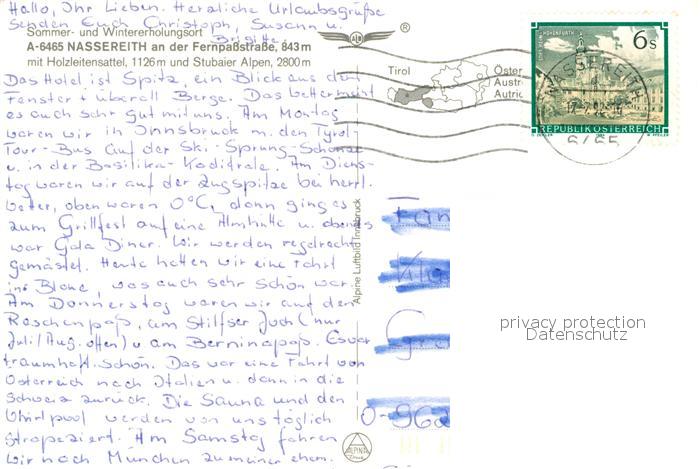 Hallo, Ihr Lieben. Herzliche Urlaubsgrüße
senden Euch Christoph, Susann u.
Brigitte.
Sommer- und Wintererholungsort
A-6465 NASSEREITH an der Fernpaßstraße, 843 m
mit Holzleitensattel, 1126 m und Stubaier Alpen, 2800 m
®
Das Hotel ist Spitz, ein Blick aus dem
Fenster + überall Berge. Das Wetter meint
es auch sehr gut mit uns. Am Montag
waren wir in Innsbruck m. den Tyrol-
Tour-Bus auf der Ski-Sprung-Schanze
u. in der Basilika-Kadidrale. Am Diens-
tag waren wir auf der Zugspitze bei herrl.
Wetter, oben waren 0°C, dann ging es
zum Grillfest auf eine Almhütte u. abends
war Gala Diner. Wir werden regelrecht
gemästet. Heute hatten wir eine Fahrt
ins Blaue, was auch sehr schön war.
Am Donnerstag waren wir auf den
Reschenpaß, am Stilfser Joch (nur
Juli/Aug. offen) u am Berninapaß. Es war
traumhaft schön. Das war eine Fahrt von
Österreich nach Italien u. dann in die
Schweiz zurück. Die Sauna und den
Whirlpool werden von uns täglich
strapeziert. Am Samstag fahren
wir nach München zu meiner ehem.
Alpine Luftbild Innsbruck
ALPINE
Tirol
Öster
Austr
Autric
6 S
STIFT REIN-HOHENFURTH
REPUBLIK ÖSTERREICH
NASSEREITH
6465
Fam
Gra
O-962
privacy protection
Datenschutz